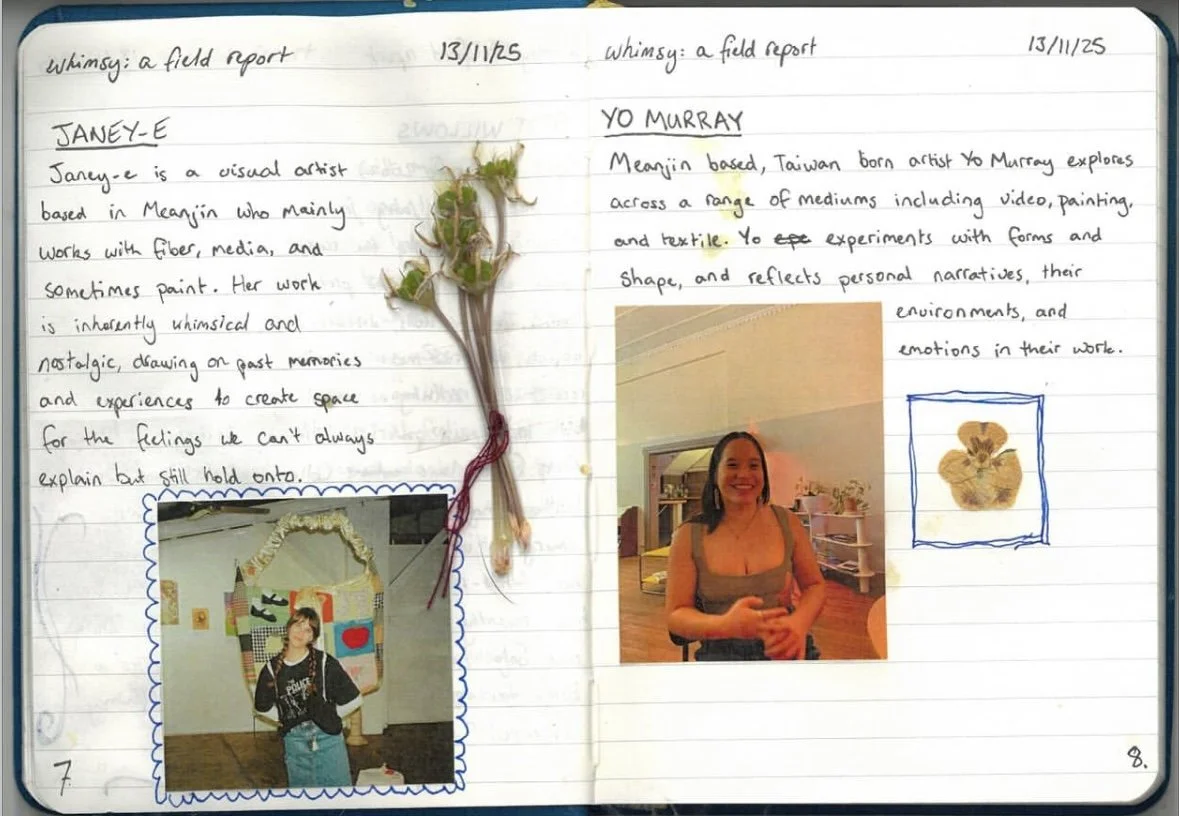 whimsy: a field report 13/11/25
JANEY-E
Janey-e is a visual artist
based in Meanjin who mainly
works with fiber, media, and
sometimes paint. Her work
is inherently whimsical and
nostalgic, drawing on past memories
and experiences to create space
for the feelings we can't always
explain but still hold onto.
POLICE
7
whimsy: a field report 13/11/25
YO MURRAY
Meanjin based, Taiwan born artist Yo Murray explores
across a range of mediums including video, painting,
and textile. Yo experiments with forms and
shape, and reflects personal narratives, their
environments, and
emotions in their work.
8.